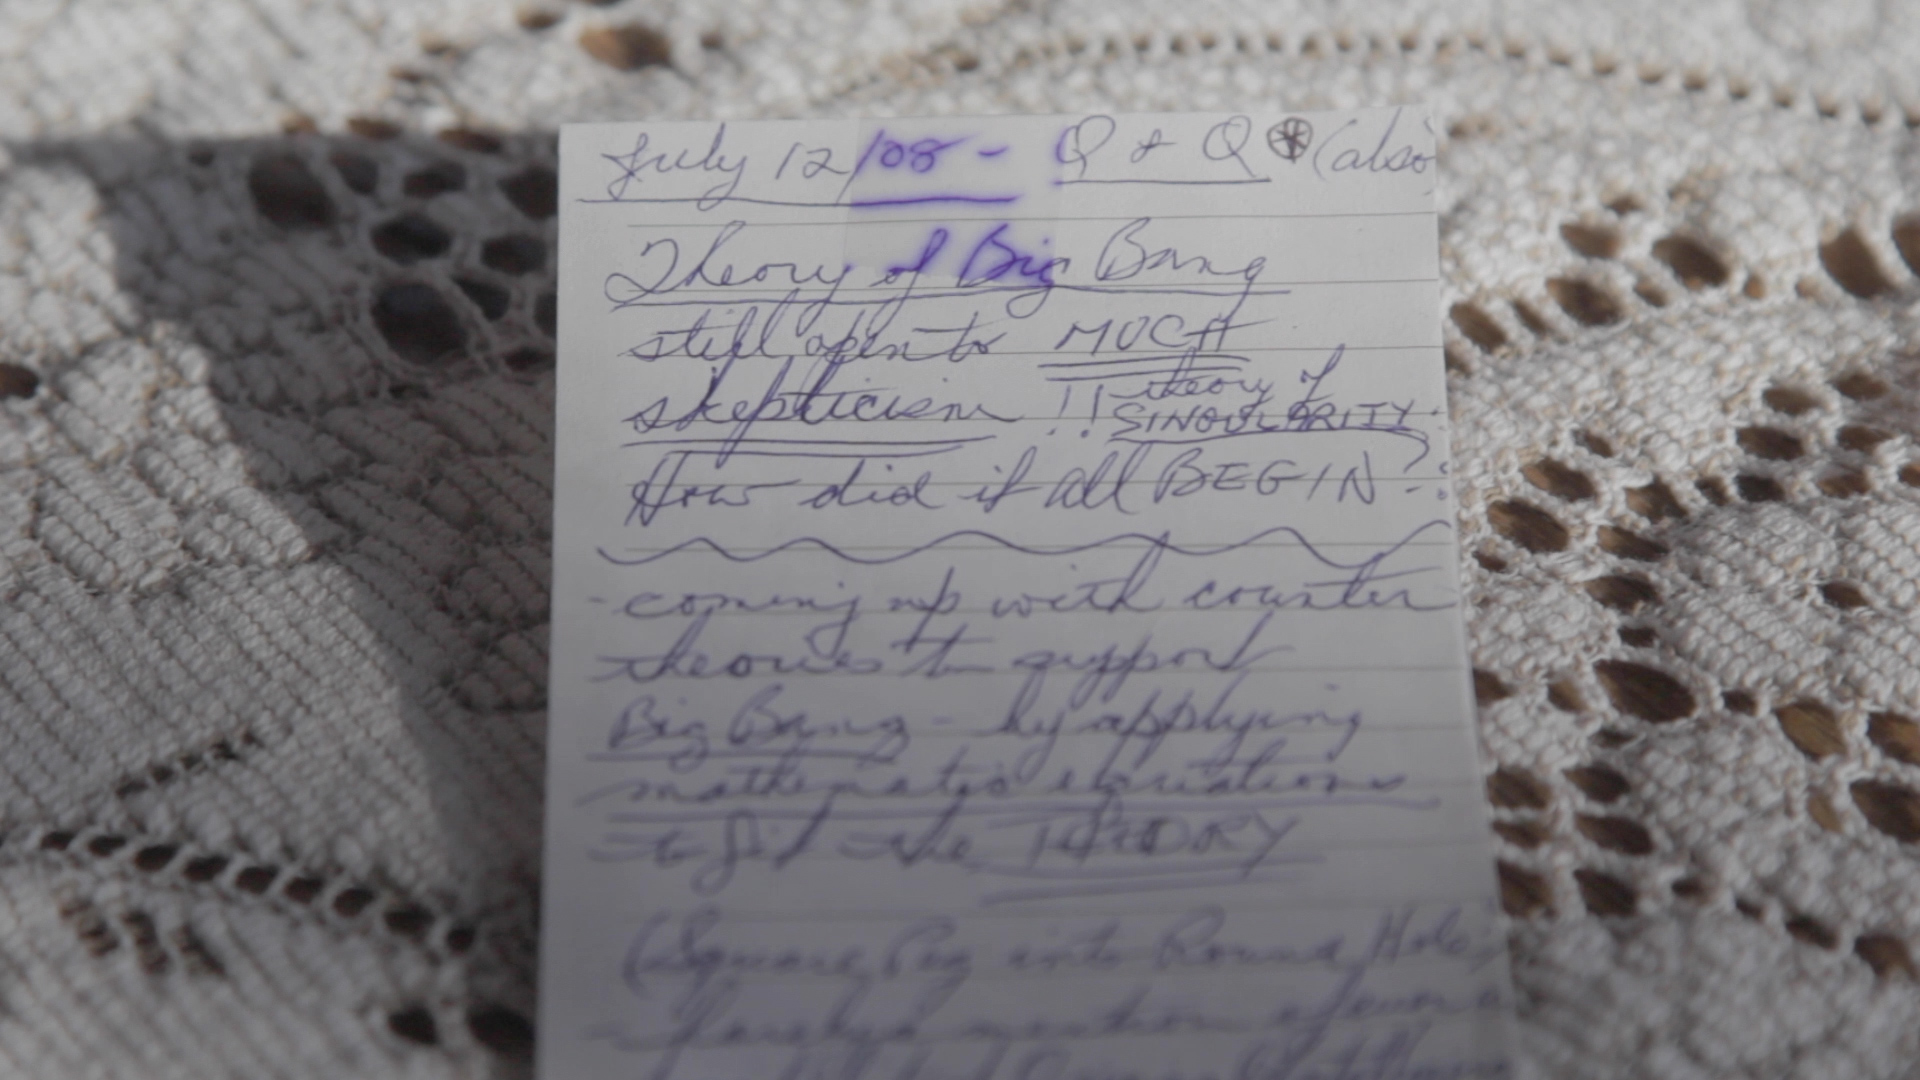 July 12/08 - Q & Q (also
Theory of Big Bang
still open to MUCH
skepticism !! theory of
SINGULARITY
How did it all BEGIN?
- coming up with counter
theories to support
Big Bang - by applying
mathematic equations
to fit the THEORY
(Square Peg into Round Hole)
mention